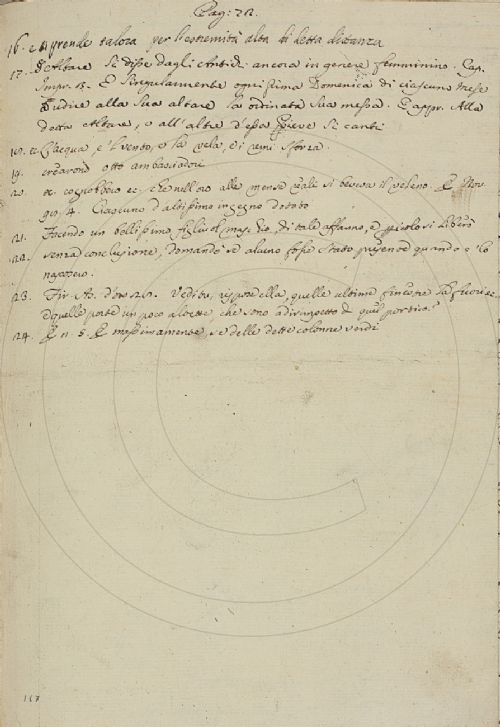 Pag: 22.
16. e si prende talora per l'estremità alta di detta distanza
17. Altare si disse dagli Antichi ancora in genere femminino. Cap.
Impr. 13. E singularmente ogni prima Domenica di ciascuno mese
udire alla sua altare la ordinata sua messa. E appr. Alla
detta Altare, o all' altre d'essa Pieve si canti
18. L'acqua, e 'l vento, e la vela, e i remi sforza.
19. crearono otto ambasciadori
20. che nell'oro alle mense reale si beveva il veleno. E Nov.
4. Ciascuno d'altissimo ingegno dotato
21. Facendo un bellissimo figliuol maschio, di tale affanno, e
22. senza conclusione, domandò se alcuno fosse stato presente quando e' lo
nascose.
23. Fir. As. Vedi tu, rispose ella, quelle ultime finestre là fuori
e quelle porte un poco alzette, che sono a dirimpetto di quel portico?
24. E n. 5. E massimamente, se delle dette colonne verdi
117